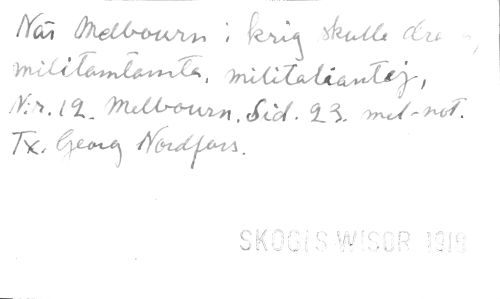 När Melbourn i krig skulle dra
militamtamta, militaliantej,
N:r. 12. Melbourn. Sid. 23. mel-not.
Tx. Georg Nordfors.
SKOGIS WISOR 1918